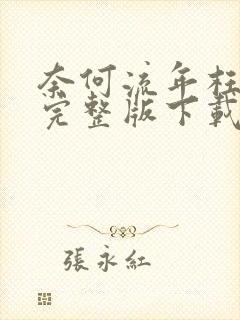 奈何流年枉
完整版下载
張永紅